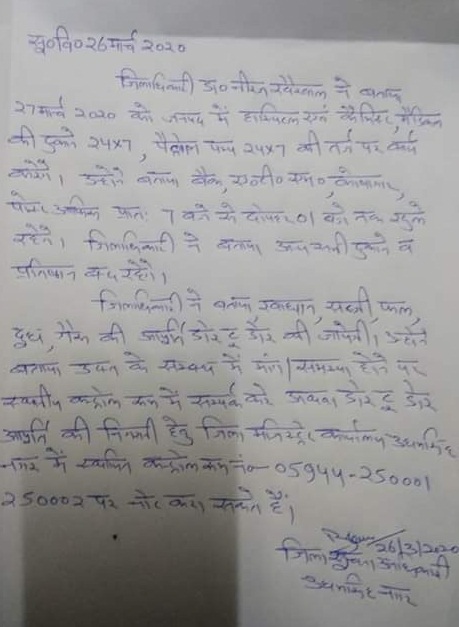 सू0वि0 26 मार्च 2020
जिलाधिकारी डा0 नीरज खैरवाल ने बताया
27 मार्च 2020 को जनपद में हास्पिटल एवं कैमिस्ट, मेडिकल
की दुकाने 24x7, पैट्रोल पम्प 24x7 की तर्ज पर कार्य
करेंगे। उन्होने बताया बैंक, ए0टी0एम0, कोषागार,
पोस्ट आफिस प्रातः 7 बजे से दोपहर 01 बजे तक खुले
रहेंगे। जिलाधिकारी ने बताया अन्य सभी दुकाने व
प्रतिष्ठान बन्द रहेंगे।
जिलाधिकारी ने बताया खाद्यान, सब्जी, फल,
दूध, गैस की आपूर्ति डोर टू डोर की जायेगी। उन्होने
बताया उक्त के सम्बन्ध में मांग/समस्या होने पर
स्थानीय कन्ट्रोल रूम में सम्पर्क करें अथवा डोर टू डोर
आपूर्ति की हेतु जिला मजिस्ट्रेट कार्यालय उधमसिंह
नगर में स्थापित कन्ट्रोल रूम नं0- 05944-250001
250002 पर नोट करा सकते हैं।
26/3/2020
जिला सूचना अधिकारी
उधमसिंह नगर